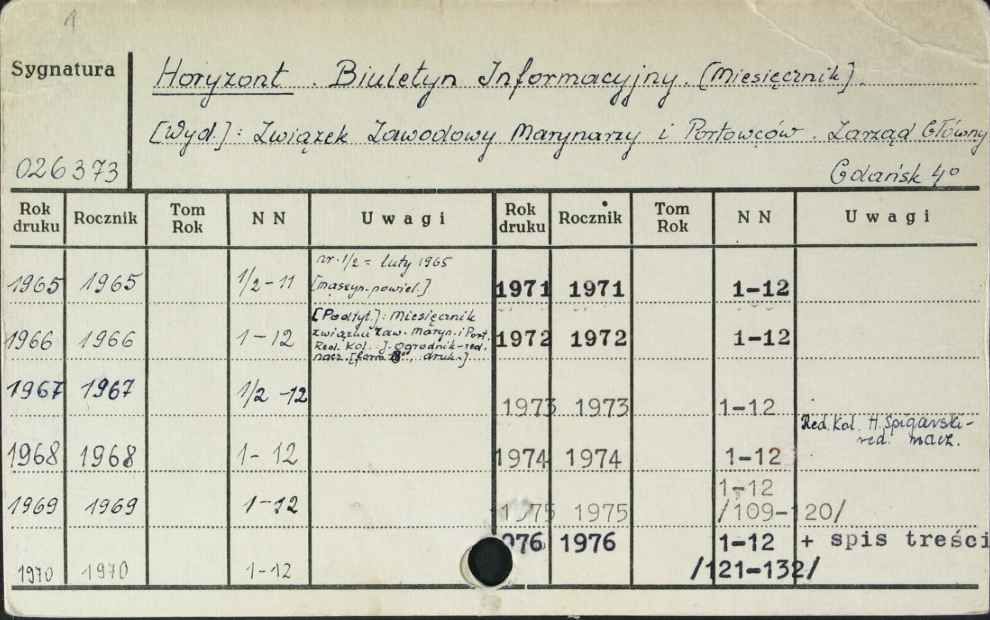 1
Sygnatura
Horyzont. Biuletyn Informacyjny. [Miesięcznik].
[Wyd.]: Związek Zawodowy Marynarzy i Portowców. Zarząd Główny
026373
Gdańsk 4°
Rok druku Rocznik Tom Rok NN Uwagi Rok druku Rocznik Tom Rok NN Uwagi
1965 1965 1/2-11 nr. 1/2 = luty 1965
[maszyn. powiel.]
1966 1966 1-12 [Podtyt.]: Miesięcznik
związku zaw. Maryn. i Port.
Red. Kol. J. Ogrodnik-red.
nacz. [form. 8°, druk.]
1967 1967 1/2-12
1968 1968 1-12
1969 1969 1-12
1970 1970 1-12
1971 1971 1-12
1972 1972 1-12
1973 1973 1-12
Red. Kol. H. Spigarski-
red. nacz.
1974 1974 1-12
1975 1975 1-12
/109-120/
076 1976 1-12 + spis treści
/121-132/